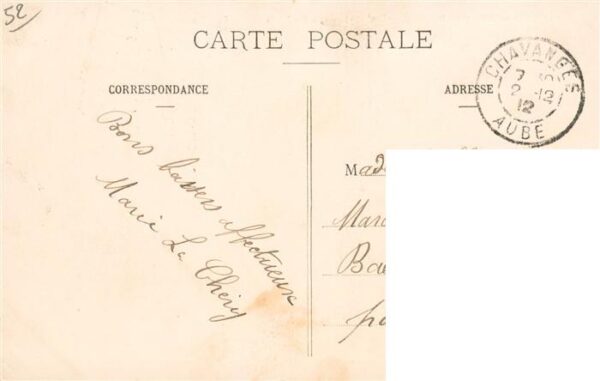 52
CARTE POSTALE
CORRESPONDANCE
ADRESSE
CHAVANGES
7
2 - 12
12
AUBE
Bons baisers affectueux
Marie Le Chéry
Mad
Mar
Ba